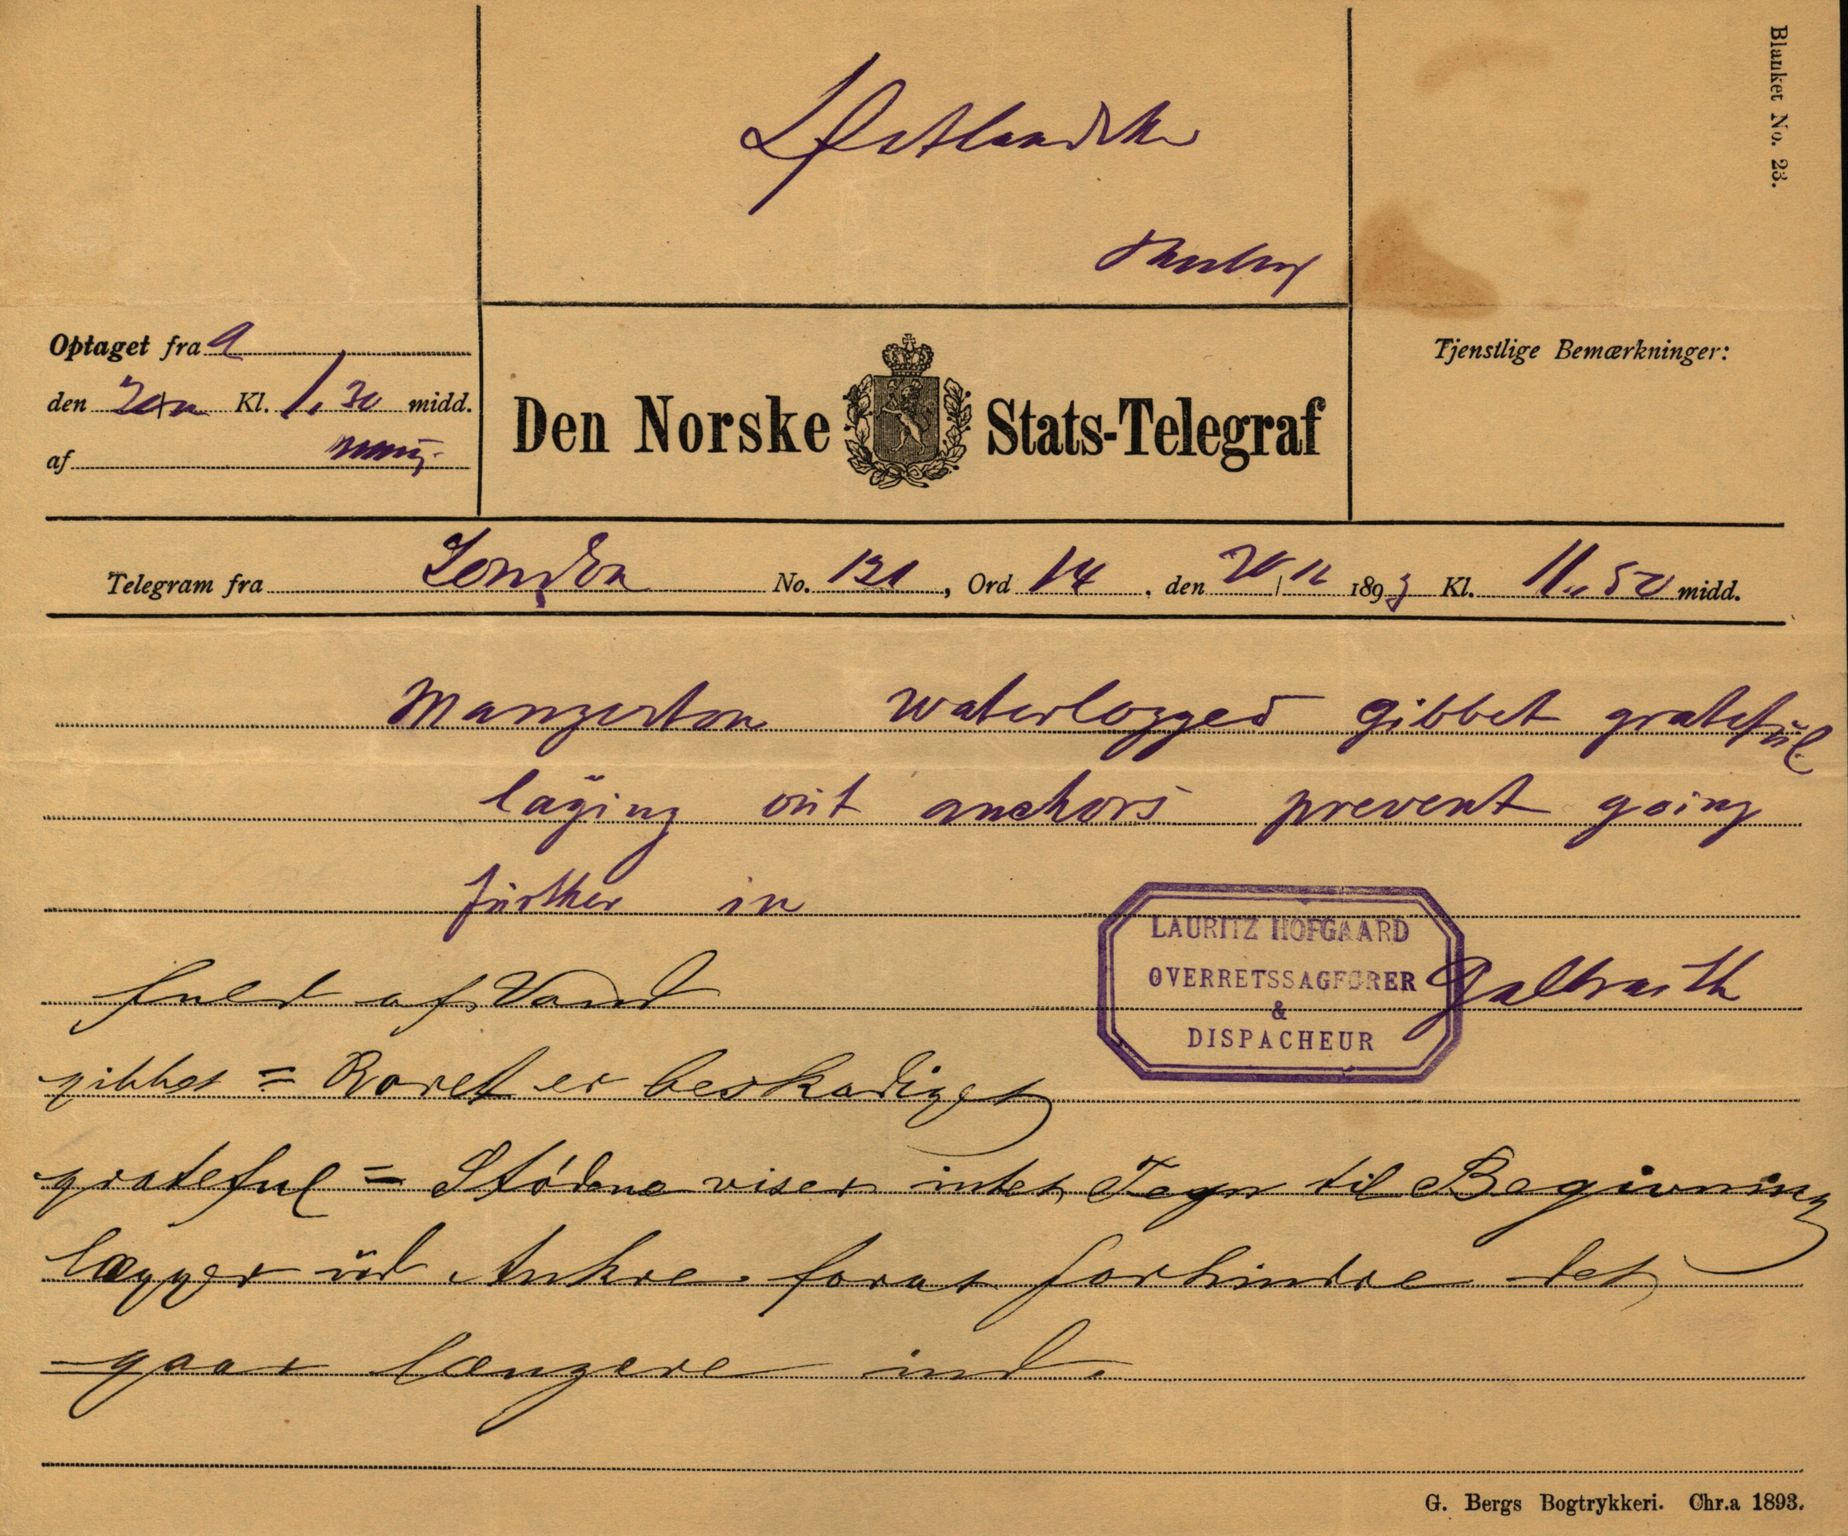 Blanket No. 23.
Optaget fra a
den Kl. 1.30 midd.
af
Den Norske Stats-Telegraf
Tjenstlige Bemærkninger:
Telegram fra London No. 131, Ord 14, den 20/12 1893 Kl. 11.50 midd.
Mangerton waterlogged gibbet grateful
laying out anchors prevent going
further in
Galbraith
LAURITZ HOFGAARD
OVERRETSSAGFØRER
&
DISPACHEUR
fuld af Vand
gibbet = Roret er beskadiget
grateful = Stødene viser intet Tegn til Begivning
lægger ud Ankre forat forhindre det
gaar længere ind.
G. Bergs Bogtrykkeri. Chr.a 1893.